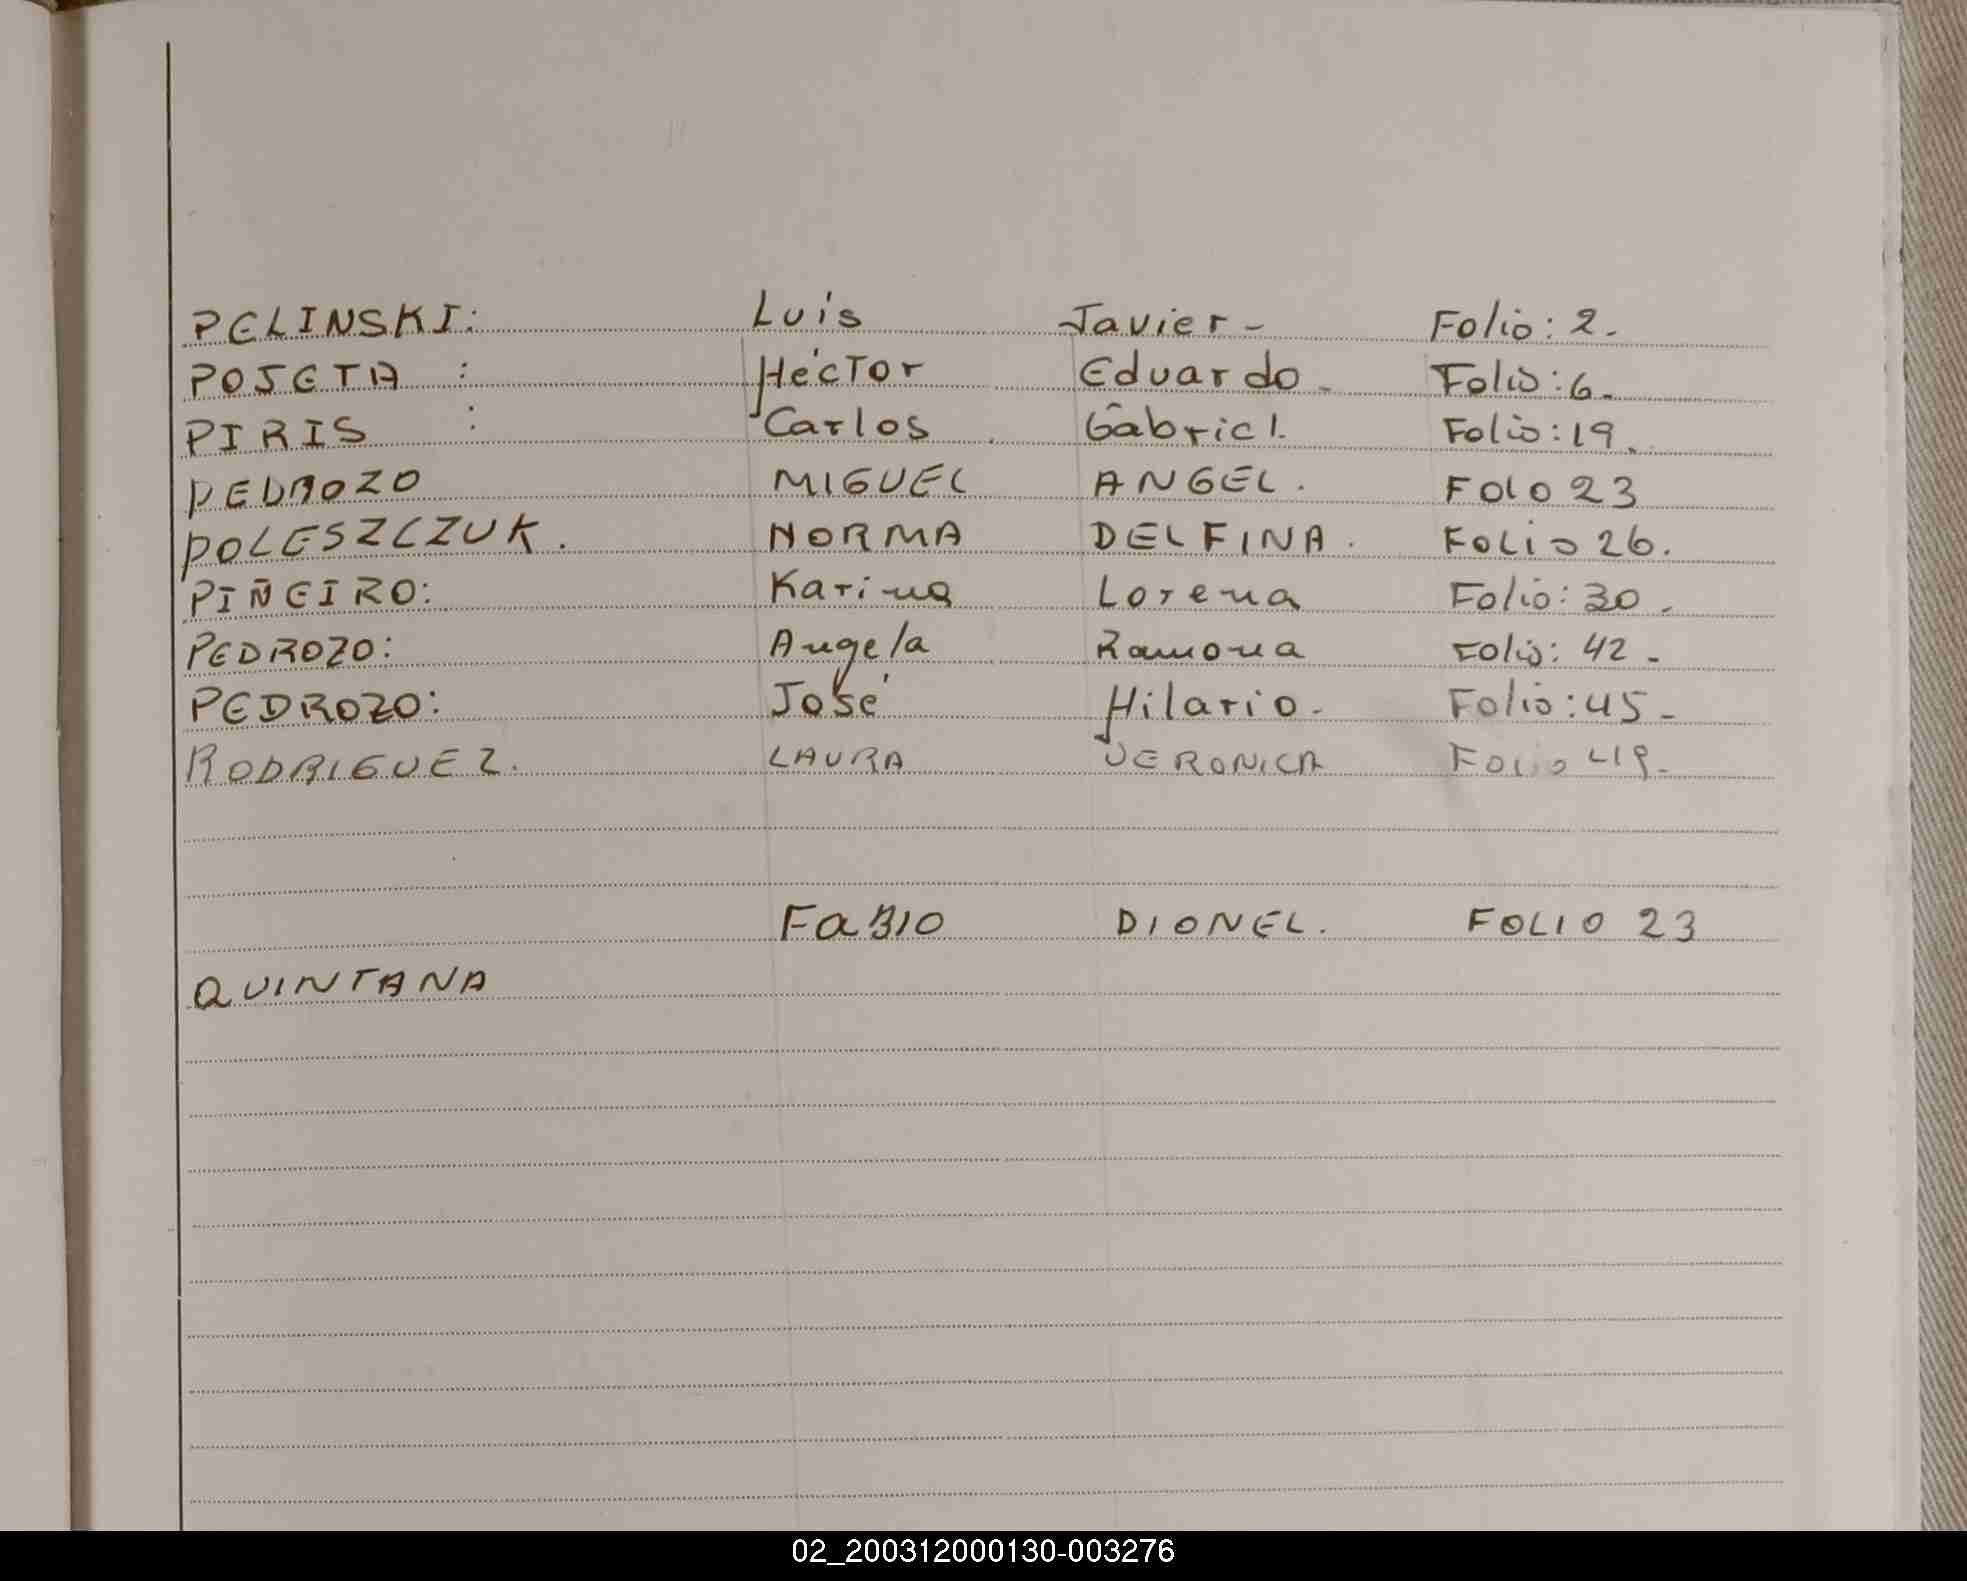 PELINSKI: Luis Javier - Folio: 2.
POSETA : Héctor Eduardo - Folio: 6.
PIRIS : Carlos Gabriel. Folio: 19.
PEDROZO MIGUEL ANGEL. FOLO 23
POLESZCZUK. NORMA DELFINA. FOLIO 26.
PIÑEIRO: Karina Lorena Folio: 30.
PEDROZO: Angela Ramona Folio: 42 -
PEDROZO: José Hilario - Folio: 45 -
RODRIGUEZ. LAURA VERONICA FOLIO 49-
FABIO DIONEL. FOLIO 23
QUINTANA
02_200312000130-003276